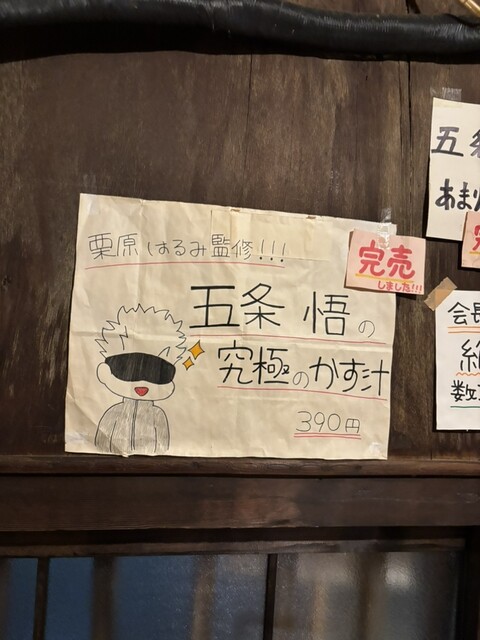 栗原はるみ監修!!!
五条 悟の
究極のかす汁
390円
完売
しました!!!
五
あま
会長
数